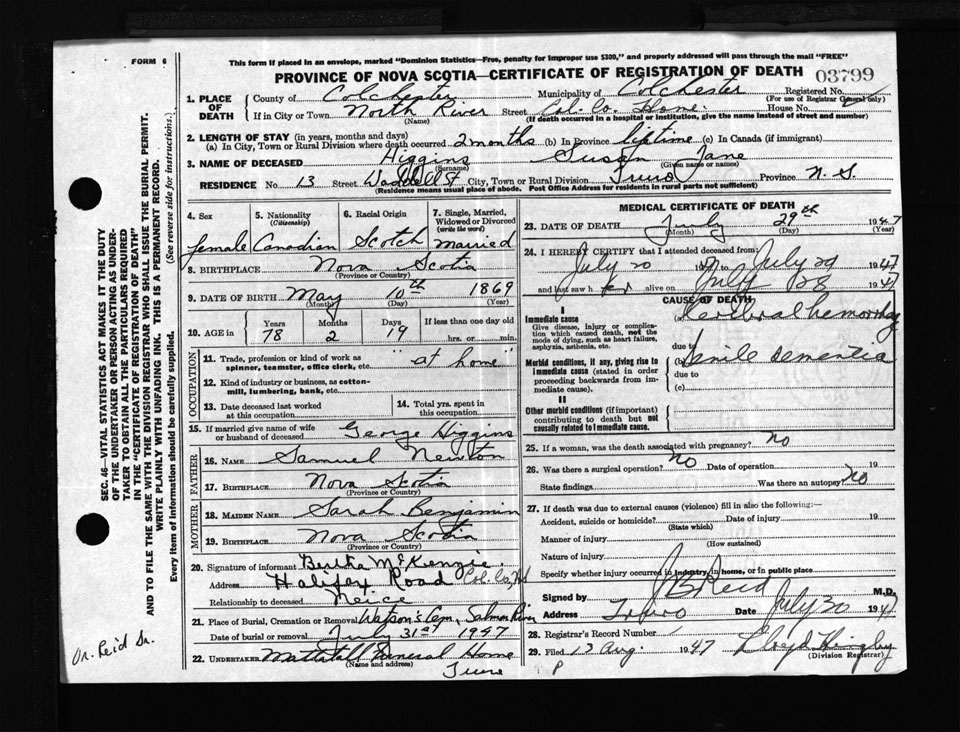 FORM 6
This form if placed in an envelope, marked "Dominion Statistics—Free, penalty for improper use $300," and properly addressed will pass through the mail "FREE"
PROVINCE OF NOVA SCOTIA—CERTIFICATE OF REGISTRATION OF DEATH 03799
1. PLACE OF DEATH County of Colchester Municipality of Colchester Registered No.
(For use of Registrar General only)
If in City or Town North River Street Col. Co. Home. House No.
(Name) (If death occurred in a hospital or institution, give the name instead of street and number)
2. LENGTH OF STAY (in years, months and days)
(a) In City, Town or Rural Division where death occurred 2 months (b) In Province lifetime (c) In Canada (if immigrant)
3. NAME OF DECEASED Higgins Susan Jane
(Surname) (Given name or names)
RESIDENCE No. 13 Street Waddell St City, Town or Rural Division Truro Province N. S.
(Residence means usual place of abode. Post Office Address for residents in rural parts not sufficient)
SEC. 46—VITAL STATISTICS ACT MAKES IT THE DUTY
OF THE UNDERTAKER OR PERSON ACTING AS UNDER-
TAKER TO OBTAIN ALL THE PARTICULARS REQUIRED
IN THE "CERTIFICATE OF REGISTRATION OF DEATH"
AND TO FILE THE SAME WITH THE DIVISION REGISTRAR WHO SHALL ISSUE THE BURIAL PERMIT.
WRITE PLAINLY WITH UNFADING INK. THIS IS A PERMANENT RECORD.
Every item of information should be carefully supplied. (See reverse side for instructions.)
4. Sex 5. Nationality (Citizenship) 6. Racial Origin 7. Single, Married, Widowed or Divorced (write the word)
female Canadian Scotch married
8. BIRTHPLACE Nova Scotia
(Province or Country)
9. DATE OF BIRTH May 10th 1869
(Month) (Day) (Year)
10. AGE in Years Months Days If less than one day old
78 2 19 hrs. or min.
OCCUPATION
11. Trade, profession or kind of work as spinner, teamster, office clerk, etc. "at home"
12. Kind of industry or business, as cotton-mill, lumbering, bank, etc.
13. Date deceased last worked at this occupation
14. Total yrs. spent in this occupation
15. If married give name of wife or husband of deceased George Higgins
FATHER
16. NAME Samuel Newton
17. BIRTHPLACE Nova Scotia
(Province or Country)
MOTHER
18. MAIDEN NAME Sarah Benjamin
19. BIRTHPLACE Nova Scotia
(Province or Country)
20. Signature of informant Bertha McKenzie.
Address Halifax Road Col. Co, NS
Relationship to deceased Neice
21. Place of Burial, Cremation or Removal Watson's Cem, Salmon River
Date of burial or removal July 31st 1947
22. UNDERTAKER Mattatall Funeral Home
(Name and address)
Truro
MEDICAL CERTIFICATE OF DEATH
23. DATE OF DEATH July 29th 1947
(Month) (Day) (Year)
24. I HEREBY CERTIFY that I attended deceased from
July 20 1947 to July 29 1947
and last saw her alive on July 28 1947
CAUSE OF DEATH
I
Immediate cause
Give disease, injury or complication which caused death, not the mode of dying, such as heart failure, asphyxia, asthenia, etc.
(a) Cerebral hemorrhag
due to
Morbid conditions, if any, giving rise to immediate cause (stated in order proceeding backwards from immediate cause).
(b) Senile dementia
due to
(c)
II
Other morbid conditions (if important) contributing to death but not causally related to immediate cause.
25. If a woman, was the death associated with pregnancy? no
26. Was there a surgical operation? no Date of operation 19
State findings Was there an autopsy? no
27. If death was due to external causes (violence) fill in also the following:—
Accident, suicide or homicide? Date of injury 19
(State which)
Manner of injury
(How sustained)
Nature of injury
Specify whether injury occurred in industry, in home, or in public place
Signed by J B Reid M.D.
Address Truro Date July 30 1947
28. Registrar's Record Number 1
29. Filed 13 Aug. 1947 Lloyd
(Division Registrar)
P
Dr. Reid Sr.